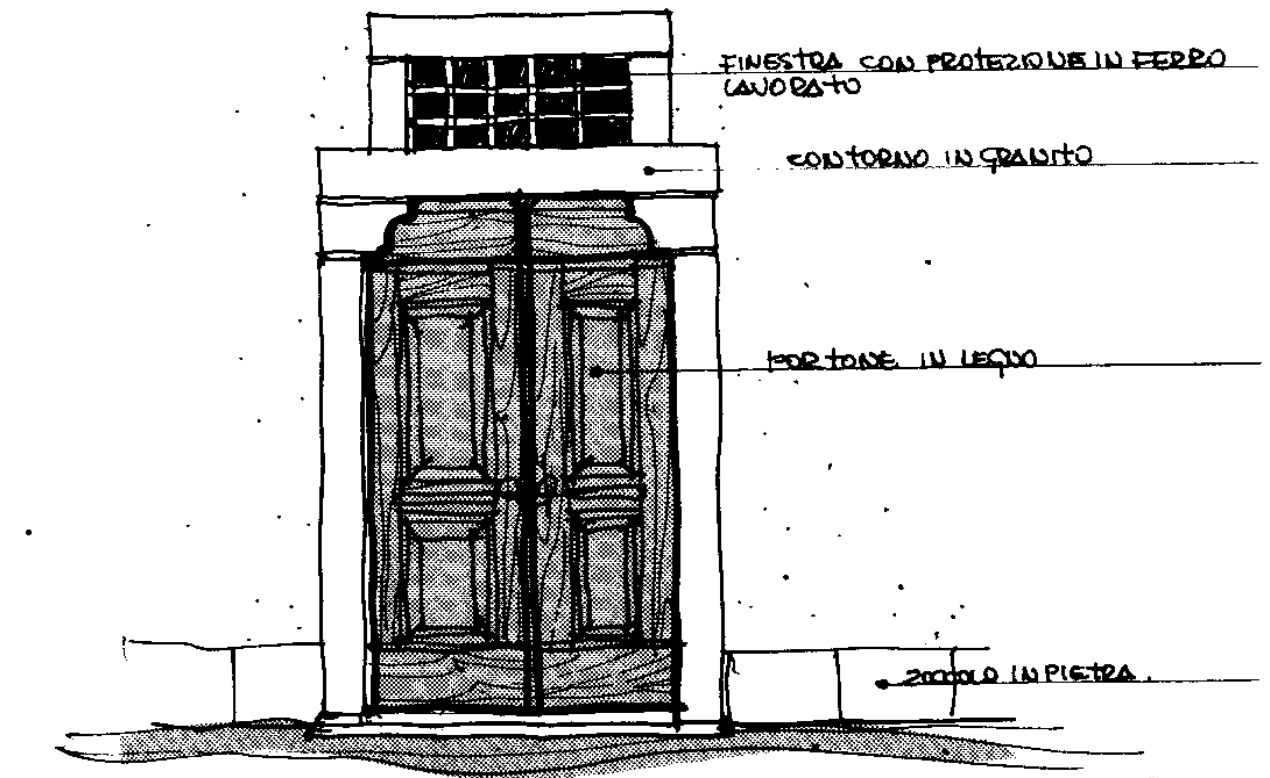 FINESTRA CON PROTEZIONE IN FERRO
LAVORATO
CONTORNO IN GRANITO
PORTONE IN LEGNO
ZOCCOLO IN PIETRA.